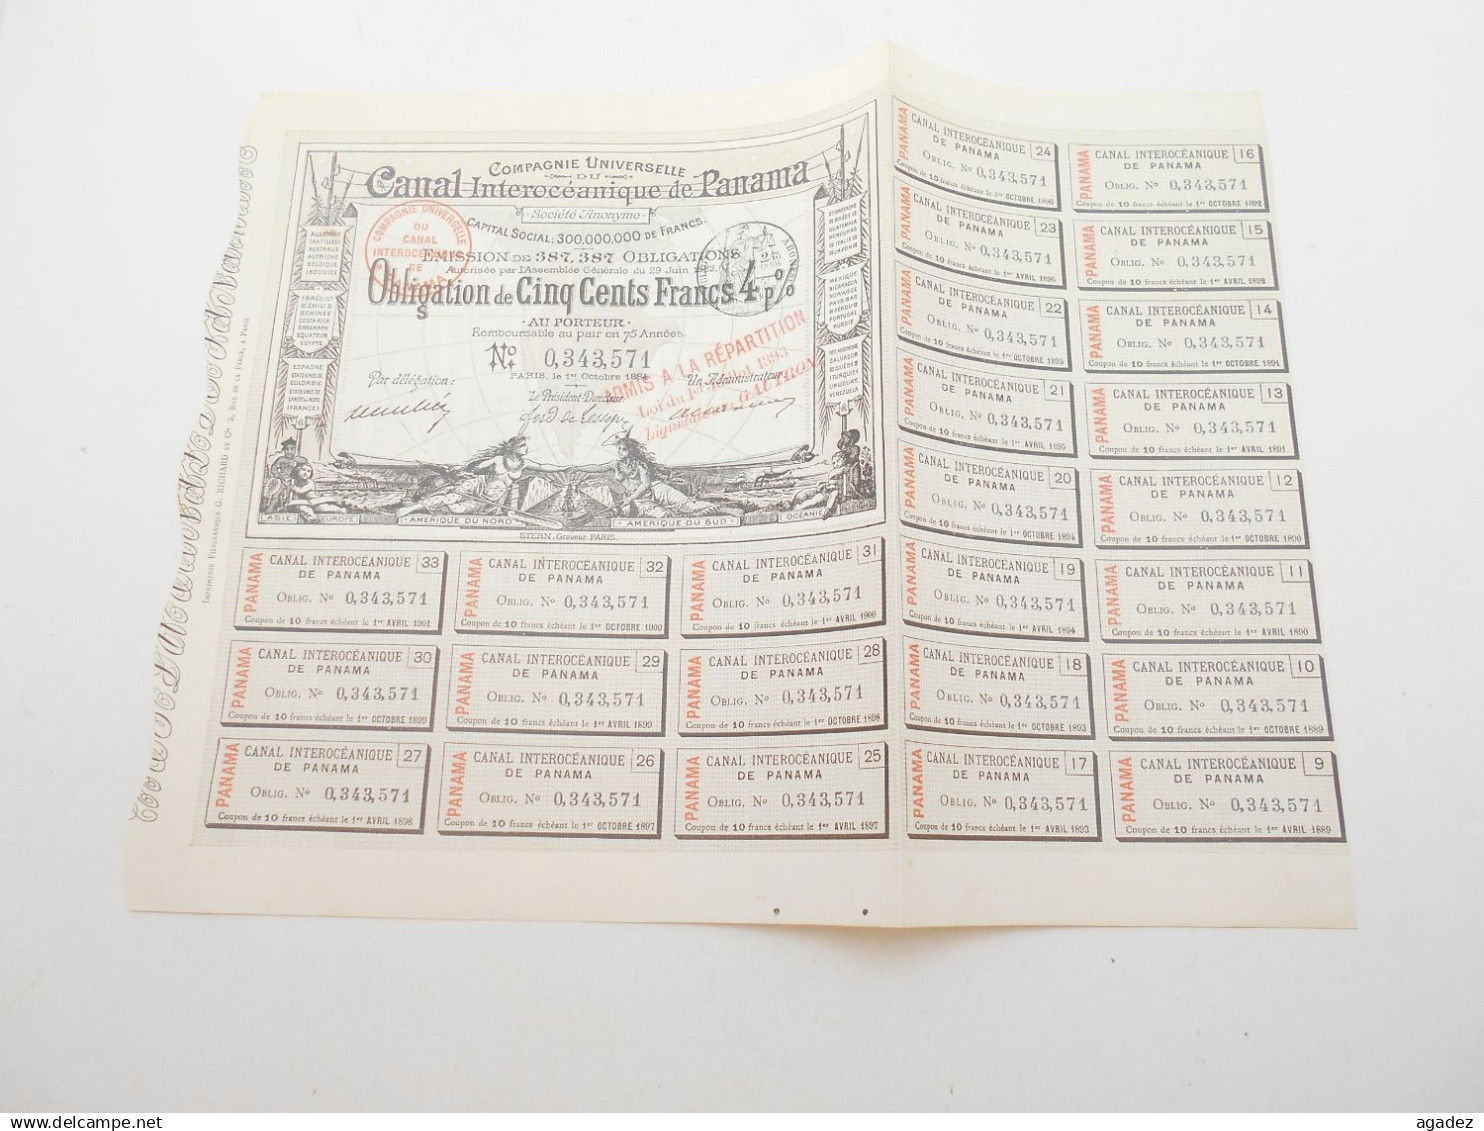 COMPAGNIE UNIVERSELLE
DU
Canal Interocéanique de Panama
Société Anonyme
CAPITAL SOCIAL: 300,000,000 DE FRANCS.
ÉMISSION DE 387,387 OBLIGATIONS
Autorisée par l'Assemblée Générale du 29 Juin 1882.
Obligation de Cinq Cents Francs 4 p%
S
AU PORTEUR
Remboursable au pair en 75 Années.
No. 0,343,571
PARIS, le 1er Octobre 1884
Par délégation:
Le Président-Directeur
Un Administrateur
COMPAGNIE UNIVERSELLE
DU
CANAL
INTEROCÉANIQUE
DE
PANAMA
ADMIS A LA RÉPARTITION
Loi du 1er Juillet 1893
Liquidateur GAUTRON
ESPAGNE
MEXIQUE
NICARAGUA
NORWÈGE
PAYS-BAS
PÉROU
PORTUGAL
RUSSIE
SALVADOR
SUÈDE
TURQUIE
URUGUAY
VENEZUELA
ASIE
EUROPE
AMÉRIQUE DU NORD
AMÉRIQUE DU SUD
OCÉANIE
STERN, Graveur PARIS.
IMPRIMERIE FILIGRANIQUE G. RICHARD ET Cie 5, RUE DE LA PERLE, A PARIS
PANAMA
CANAL INTEROCÉANIQUE 33
DE PANAMA
OBLIG. No 0,343,571
Coupon de 10 francs échéant le 1er AVRIL 1901
PANAMA
CANAL INTEROCÉANIQUE 32
DE PANAMA
OBLIG. No 0,343,571
Coupon de 10 francs échéant le 1er OCTOBRE 1900
PANAMA
CANAL INTEROCÉANIQUE 31
DE PANAMA
OBLIG. No 0,343,571
Coupon de 10 francs échéant le 1er AVRIL 1900
PANAMA
CANAL INTEROCÉANIQUE 30
DE PANAMA
OBLIG. No 0,343,571
Coupon de 10 francs échéant le 1er OCTOBRE 1899
PANAMA
CANAL INTEROCÉANIQUE 29
DE PANAMA
OBLIG. No 0,343,571
Coupon de 10 francs échéant le 1er AVRIL 1899
PANAMA
CANAL INTEROCÉANIQUE 28
DE PANAMA
OBLIG. No 0,343,571
Coupon de 10 francs échéant le 1er OCTOBRE 1898
PANAMA
CANAL INTEROCÉANIQUE 27
DE PANAMA
OBLIG. No 0,343,571
Coupon de 10 francs échéant le 1er AVRIL 1898
PANAMA
CANAL INTEROCÉANIQUE 26
DE PANAMA
OBLIG. No 0,343,571
Coupon de 10 francs échéant le 1er OCTOBRE 1897
PANAMA
CANAL INTEROCÉANIQUE 25
DE PANAMA
OBLIG. No 0,343,571
Coupon de 10 francs échéant le 1er AVRIL 1897
PANAMA
CANAL INTEROCÉANIQUE 24
DE PANAMA
OBLIG. No 0,343,571
Coupon de 10 francs échéant le 1er OCTOBRE 1896
PANAMA
CANAL INTEROCÉANIQUE 23
DE PANAMA
OBLIG. No 0,343,571
Coupon de 10 francs échéant le 1er AVRIL 1896
PANAMA
CANAL INTEROCÉANIQUE 22
DE PANAMA
OBLIG. No 0,343,571
Coupon de 10 francs échéant le 1er OCTOBRE 1895
PANAMA
CANAL INTEROCÉANIQUE 21
DE PANAMA
OBLIG. No 0,343,571
Coupon de 10 francs échéant le 1er AVRIL 1895
PANAMA
CANAL INTEROCÉANIQUE 20
DE PANAMA
OBLIG. No 0,343,571
Coupon de 10 francs échéant le 1er OCTOBRE 1894
PANAMA
CANAL INTEROCÉANIQUE 19
DE PANAMA
OBLIG. No 0,343,571
Coupon de 10 francs échéant le 1er AVRIL 1894
PANAMA
CANAL INTEROCÉANIQUE 18
DE PANAMA
OBLIG. No 0,343,571
Coupon de 10 francs échéant le 1er OCTOBRE 1893
PANAMA
CANAL INTEROCÉANIQUE 17
DE PANAMA
OBLIG. No 0,343,571
Coupon de 10 francs échéant le 1er AVRIL 1893
PANAMA
CANAL INTEROCÉANIQUE 16
DE PANAMA
OBLIG. No 0,343,571
Coupon de 10 francs échéant le 1er OCTOBRE 1892
PANAMA
CANAL INTEROCÉANIQUE 15
DE PANAMA
OBLIG. No 0,343,571
Coupon de 10 francs échéant le 1er AVRIL 1892
PANAMA
CANAL INTEROCÉANIQUE 14
DE PANAMA
OBLIG. No 0,343,571
Coupon de 10 francs échéant le 1er OCTOBRE 1891
PANAMA
CANAL INTEROCÉANIQUE 13
DE PANAMA
OBLIG. No 0,343,571
Coupon de 10 francs échéant le 1er AVRIL 1891
PANAMA
CANAL INTEROCÉANIQUE 12
DE PANAMA
OBLIG. No 0,343,571
Coupon de 10 francs échéant le 1er OCTOBRE 1890
PANAMA
CANAL INTEROCÉANIQUE 11
DE PANAMA
OBLIG. No 0,343,571
Coupon de 10 francs échéant le 1er AVRIL 1890
PANAMA
CANAL INTEROCÉANIQUE 10
DE PANAMA
OBLIG. No 0,343,571
Coupon de 10 francs échéant le 1er OCTOBRE 1889
PANAMA
CANAL INTEROCÉANIQUE 9
DE PANAMA
OBLIG. No 0,343,571
Coupon de 10 francs échéant le 1er AVRIL 1889
agadez